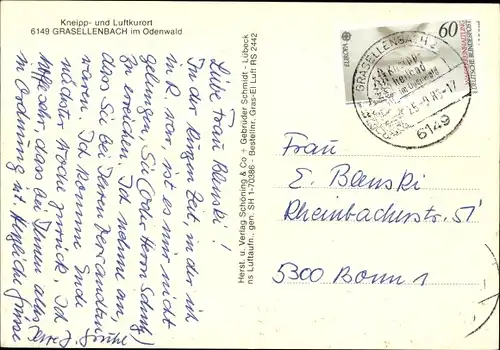 Kneipp- und Luftkurort
6149 GRASELLENBACH im Odenwald
Liebe Frau Blenski!
In der kurzen Zeit, in der ich
in R. war, ist es mir nicht
gelungen, Sie (oder Herrn
zu erreichen. Ich nehme an,
dass Sie bei Ihren Verwandten
waren. Ich komme Ende
nächster Woche zurück. Ich
hoffe sehr, dass bei Ihnen alles
in Ordnung ist. Herzliche Grüsse
Ihre
Herst. u. Verlag Schöning & Co + Gebrüder Schmidt - Lübeck
ns Luftaufn.: gen. SH 1-70386 - Bestellnr. Gras-El Luft RS 2442
EUROPA
60
DEUTSCHE BUNDESPOST
GRASELLENBACH
Kneipp-
heilbad
im Odenwald
-17
6149
Frau
E. Blenski
Rheinbacherstr. 51
5300 Bonn 1